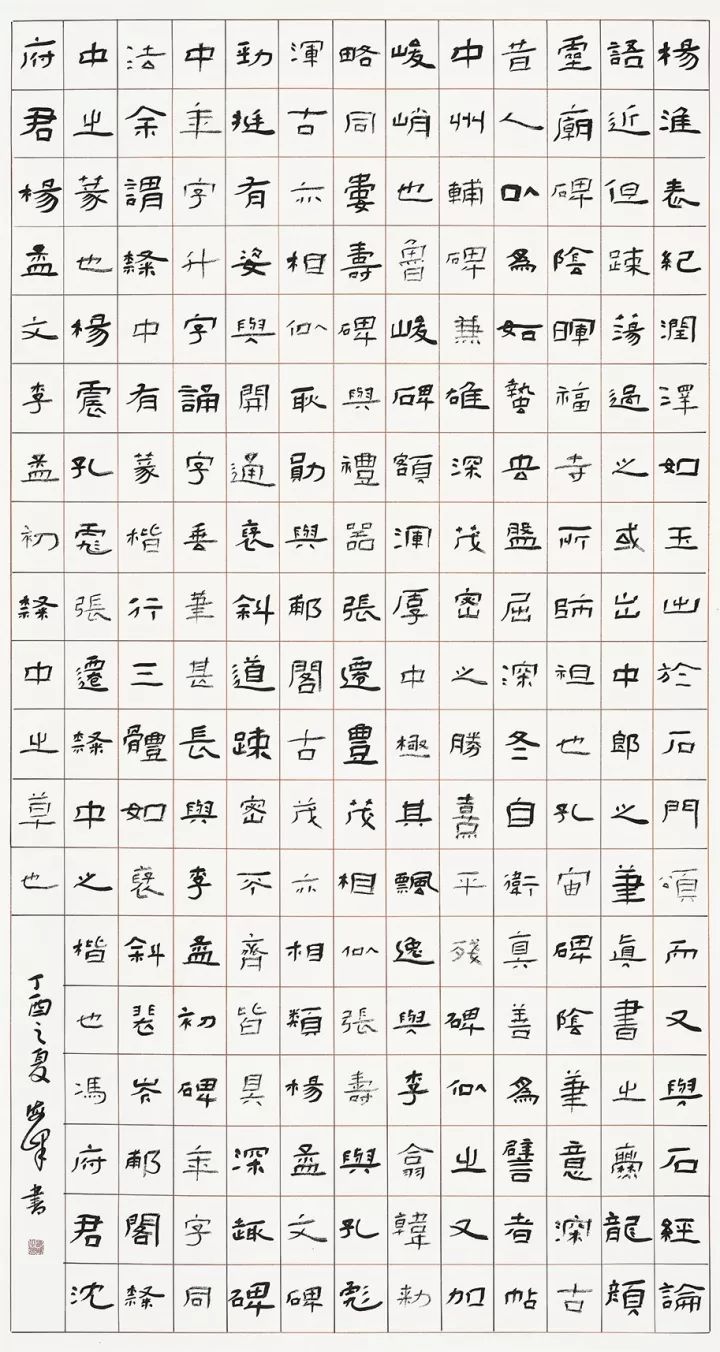 楊淮表紀潤澤如玉出於石門頌而又與石經論
語近但疎蕩過之或出中郎之筆真書之爨龍顏
靈廟碑陰暉福寺所師祖也孔宙碑陰筆意深古
昔人以為如蟄盤屈深冬自衛真善為譬者帖
中州輔碑兼雄深茂密之勝熹平殘碑似之又加
峻峭也魯峻碑額渾厚中極其飄逸與李翕韓勑
略同婁壽碑與禮器張遷豐茂相似張壽與孔彪
渾古亦相似耿勛與郙閣古茂亦相類楊孟文碑
勁挺有姿與開通褒斜道疎密不齊皆具深趣碑
中年字升字誦字垂筆甚長與李孟初碑年字同
法余謂隸中有篆楷行三體如褒斜裴岑郙閣隸
中之篆也楊震孔彪張遷隸中之楷也馮府君沈
府君楊孟文李孟初隸中之草也
丁酉之夏 書